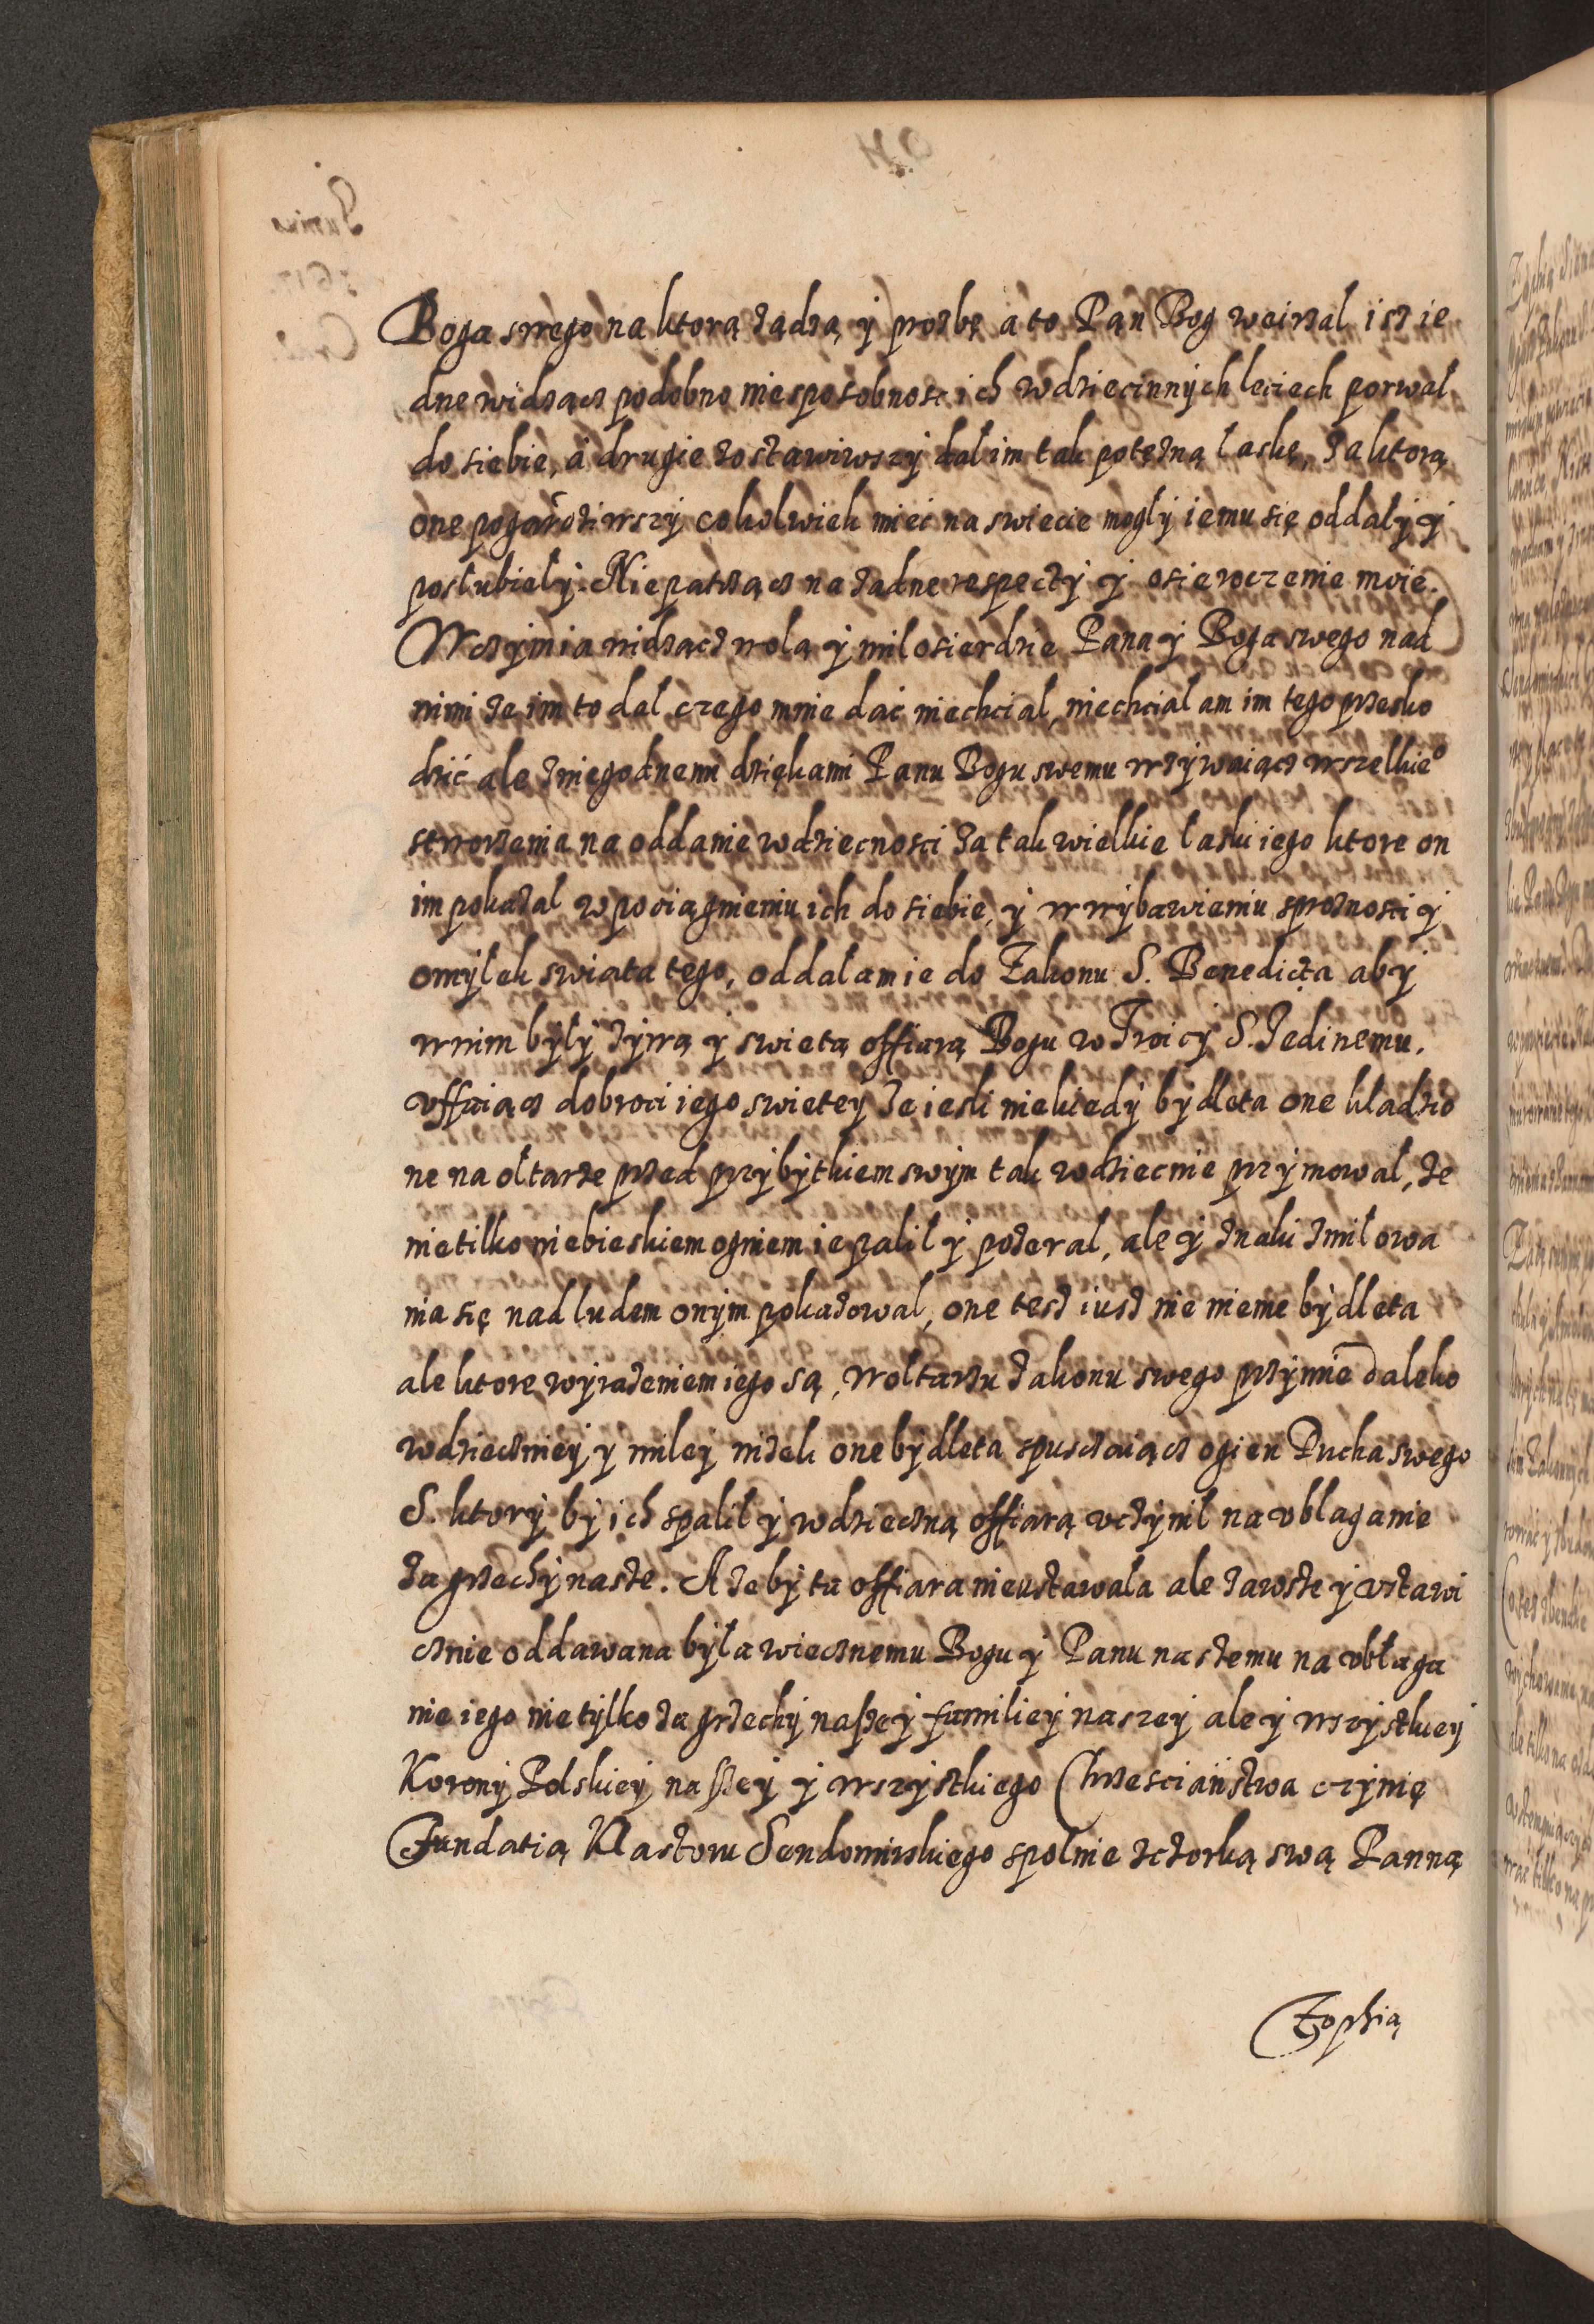 Boga swego na ktorą żądzą y prozbę a to Pąn Bog weirzal isz ie
dne widząc podobno niesposobnosc ich w dziecinnych leciech porwal
do siebie, á drugie zostawiwszy dal im tak potężną laskę, że ktorą
one pogardziwszy cokolwiek mieć na swiecie mogly iemu się oddaly y
poslubiely. Nie patrząc na żadne respecty y osieroczenie moie.
W czym ia widząc wolą y milosierdzie Pana y Boga swego nad
nimi że im to dal czego mnie dać niechcial, niechcialam im tego przesko
dzić ale z niegodnemi dziękami Panu Bogu swemu wzywaiąc wszelkieº
stworzenia na oddanie wdziecnosci za tak wielkie laski iego ktore on
im pokazal w pociągnieniu ich do siebie, y w wybawieniu sprosnosci y
omylek swiata tego, oddalam ie do Zakonu S. Benedicta aby
w nim byly żywą y swietą offiarą Bogu w Troicy S. Jedinemu.
vffaiąc dobroci iego swietey że iesli niekiedy bydleta one kladzio
ne na oltarze przed przybytkiem swym tak wdziecnie przymowal, że
nie tilko niebieskiem ogniem ie palil y pożeral, ale y znaki zmilowa
nia się nad ludem onym pokazowal, one tesz iusz nie nieme bydleta
ale ktore wyrażeniem iego są, w oltarzu zakonu swego przymie daleko
wdzieczniey y miley niżeli one bydleta spusczaiąc ogien Ducha swego
S. ktory by ich spalil y wdzieczną offiarą vczynil na vblaganie
za grzechy nasze. A żeby ta offiara nieustawala ale zawsze y vstawi
cznie oddawana byla wiecznemu Bogu y Panu naszemu na vblaga
nie iego nie tylko za grzechy naszey familiey naszey ale y wszystkiey
Korony Polskiey naszey y wszystkiego Chrzesciaństwa czynię
Fundatią Klastoru Sendomirskiego spolnie z czorką swą Panną
Zophią